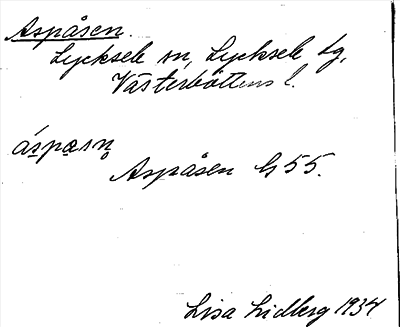 Aspåsen.
Lycksele sn, Lycksele tg,
Västerbottens l.
áspɑsn̥
Aspåsen h 55.
Lisa Lidberg 1934